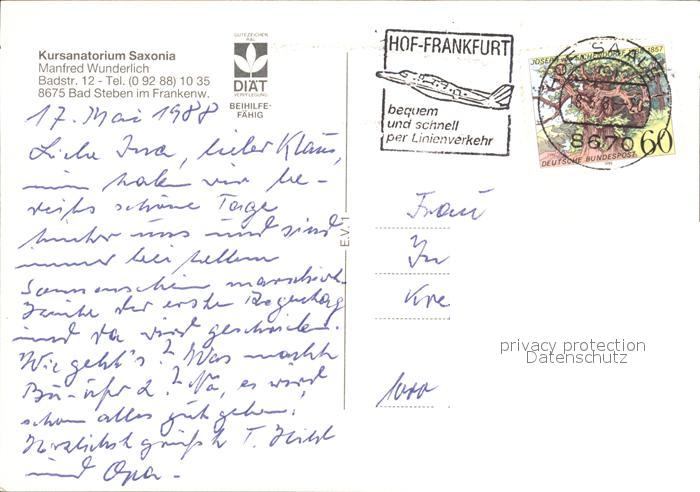 Kursanatorium Saxonia
Manfred Wunderlich
Badstr. 12 - Tel. (0 92 88) 10 35
8675 Bad Steben im Frankenw.
GUTEZEICHEN
RAL
DIÄT
VERPFLEGUNG
BEIHILFE-
FÄHIG
HOF-FRANKFURT
bequem
und schnell
per Linienverkehr
JOSEPH 1857
SAALE
8670
60
DEUTSCHE BUNDESPOST
17. Mai 1988
Liebe Ina, lieber Klaus,
nun haben wir be-
reits schöne Tage
hinter uns und sind
immer bei hellem
Sonnenschein marschiert.
Heute der erste Regentag
und da wird geschrieben.
Wie geht's? Was macht
Na, es wird
schon alles gut gehen!
Herzlichst grüßt T.
und Opa.
E.V. 1
Frau
In
Kre
1000
privacy protection
Datenschutz